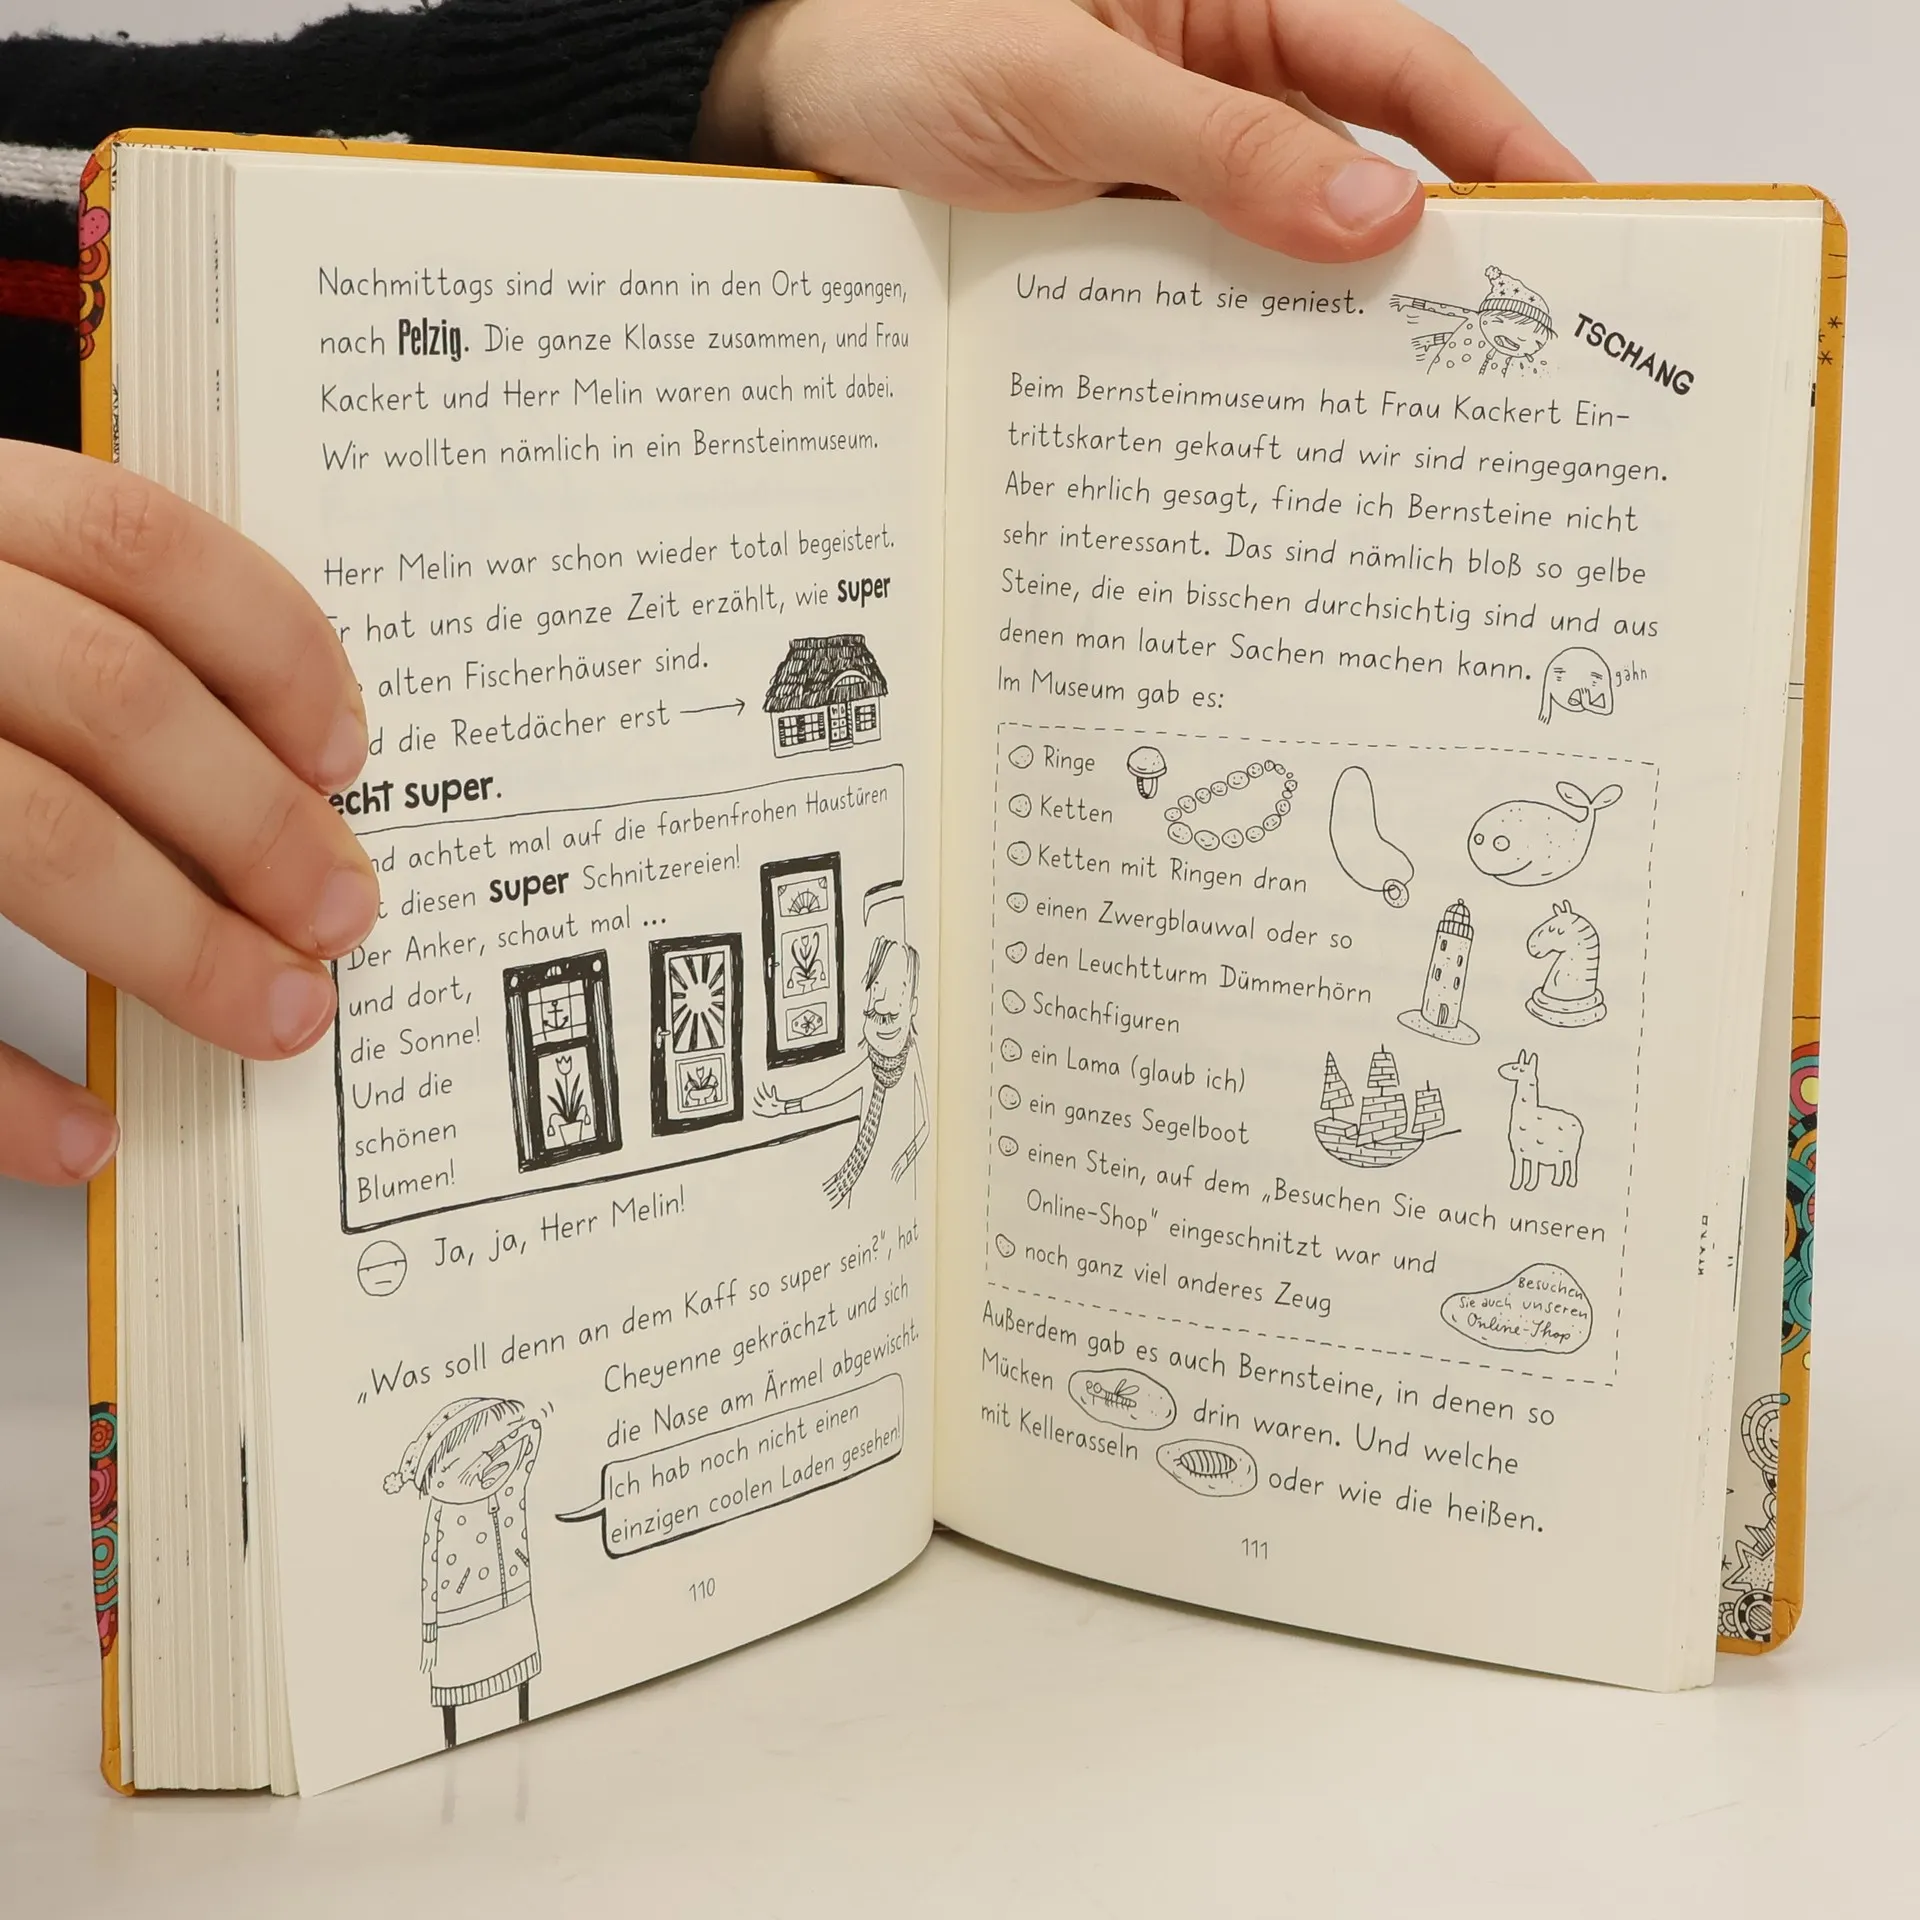 Nachmittags sind wir dann in den Ort gegangen,
nach Pelzig. Die ganze Klasse zusammen, und Frau
Kackert und Herr Melin waren auch mit dabei.
Wir wollten nämlich in ein Bernsteinmuseum.
Herr Melin war schon wieder total begeistert.
hat uns die ganze Zeit erzählt, wie super
alten Fischerhäuser sind.
die Reetdächer erst
echt super.
achtet mal auf die farbenfrohen Haustüren
diesen super Schnitzereien!
Der Anker, schaut mal ...
und dort,
die Sonne!
Und die
schönen
Blumen!
Ja, ja, Herr Melin!
„Was soll denn an dem Kaff so super sein?“, hat
Cheyenne gekrächzt und sich
die Nase am Ärmel abgewischt.
Ich hab noch nicht einen
einzigen coolen Laden gesehen!
110
Und dann hat sie geniest.
TSCHANG
Beim Bernsteinmuseum hat Frau Kackert Ein-
trittskarten gekauft und wir sind reingegangen.
Aber ehrlich gesagt, finde ich Bernsteine nicht
sehr interessant. Das sind nämlich bloß so gelbe
Steine, die ein bisschen durchsichtig sind und aus
denen man lauter Sachen machen kann.
gähn
Im Museum gab es:
Ringe
Ketten
Ketten mit Ringen dran
einen Zwergblauwal oder so
den Leuchtturm Dümmerhörn
Schachfiguren
ein Lama (glaub ich)
ein ganzes Segelboot
einen Stein, auf dem „Besuchen Sie auch unseren
Online-Shop“ eingeschnitzt war und
noch ganz viel anderes Zeug
Besuchen
Sie auch unseren
Online-Shop
Außerdem gab es auch Bernsteine, in denen so
Mücken drin waren. Und welche
mit Kellerasseln oder wie die heißen.
111